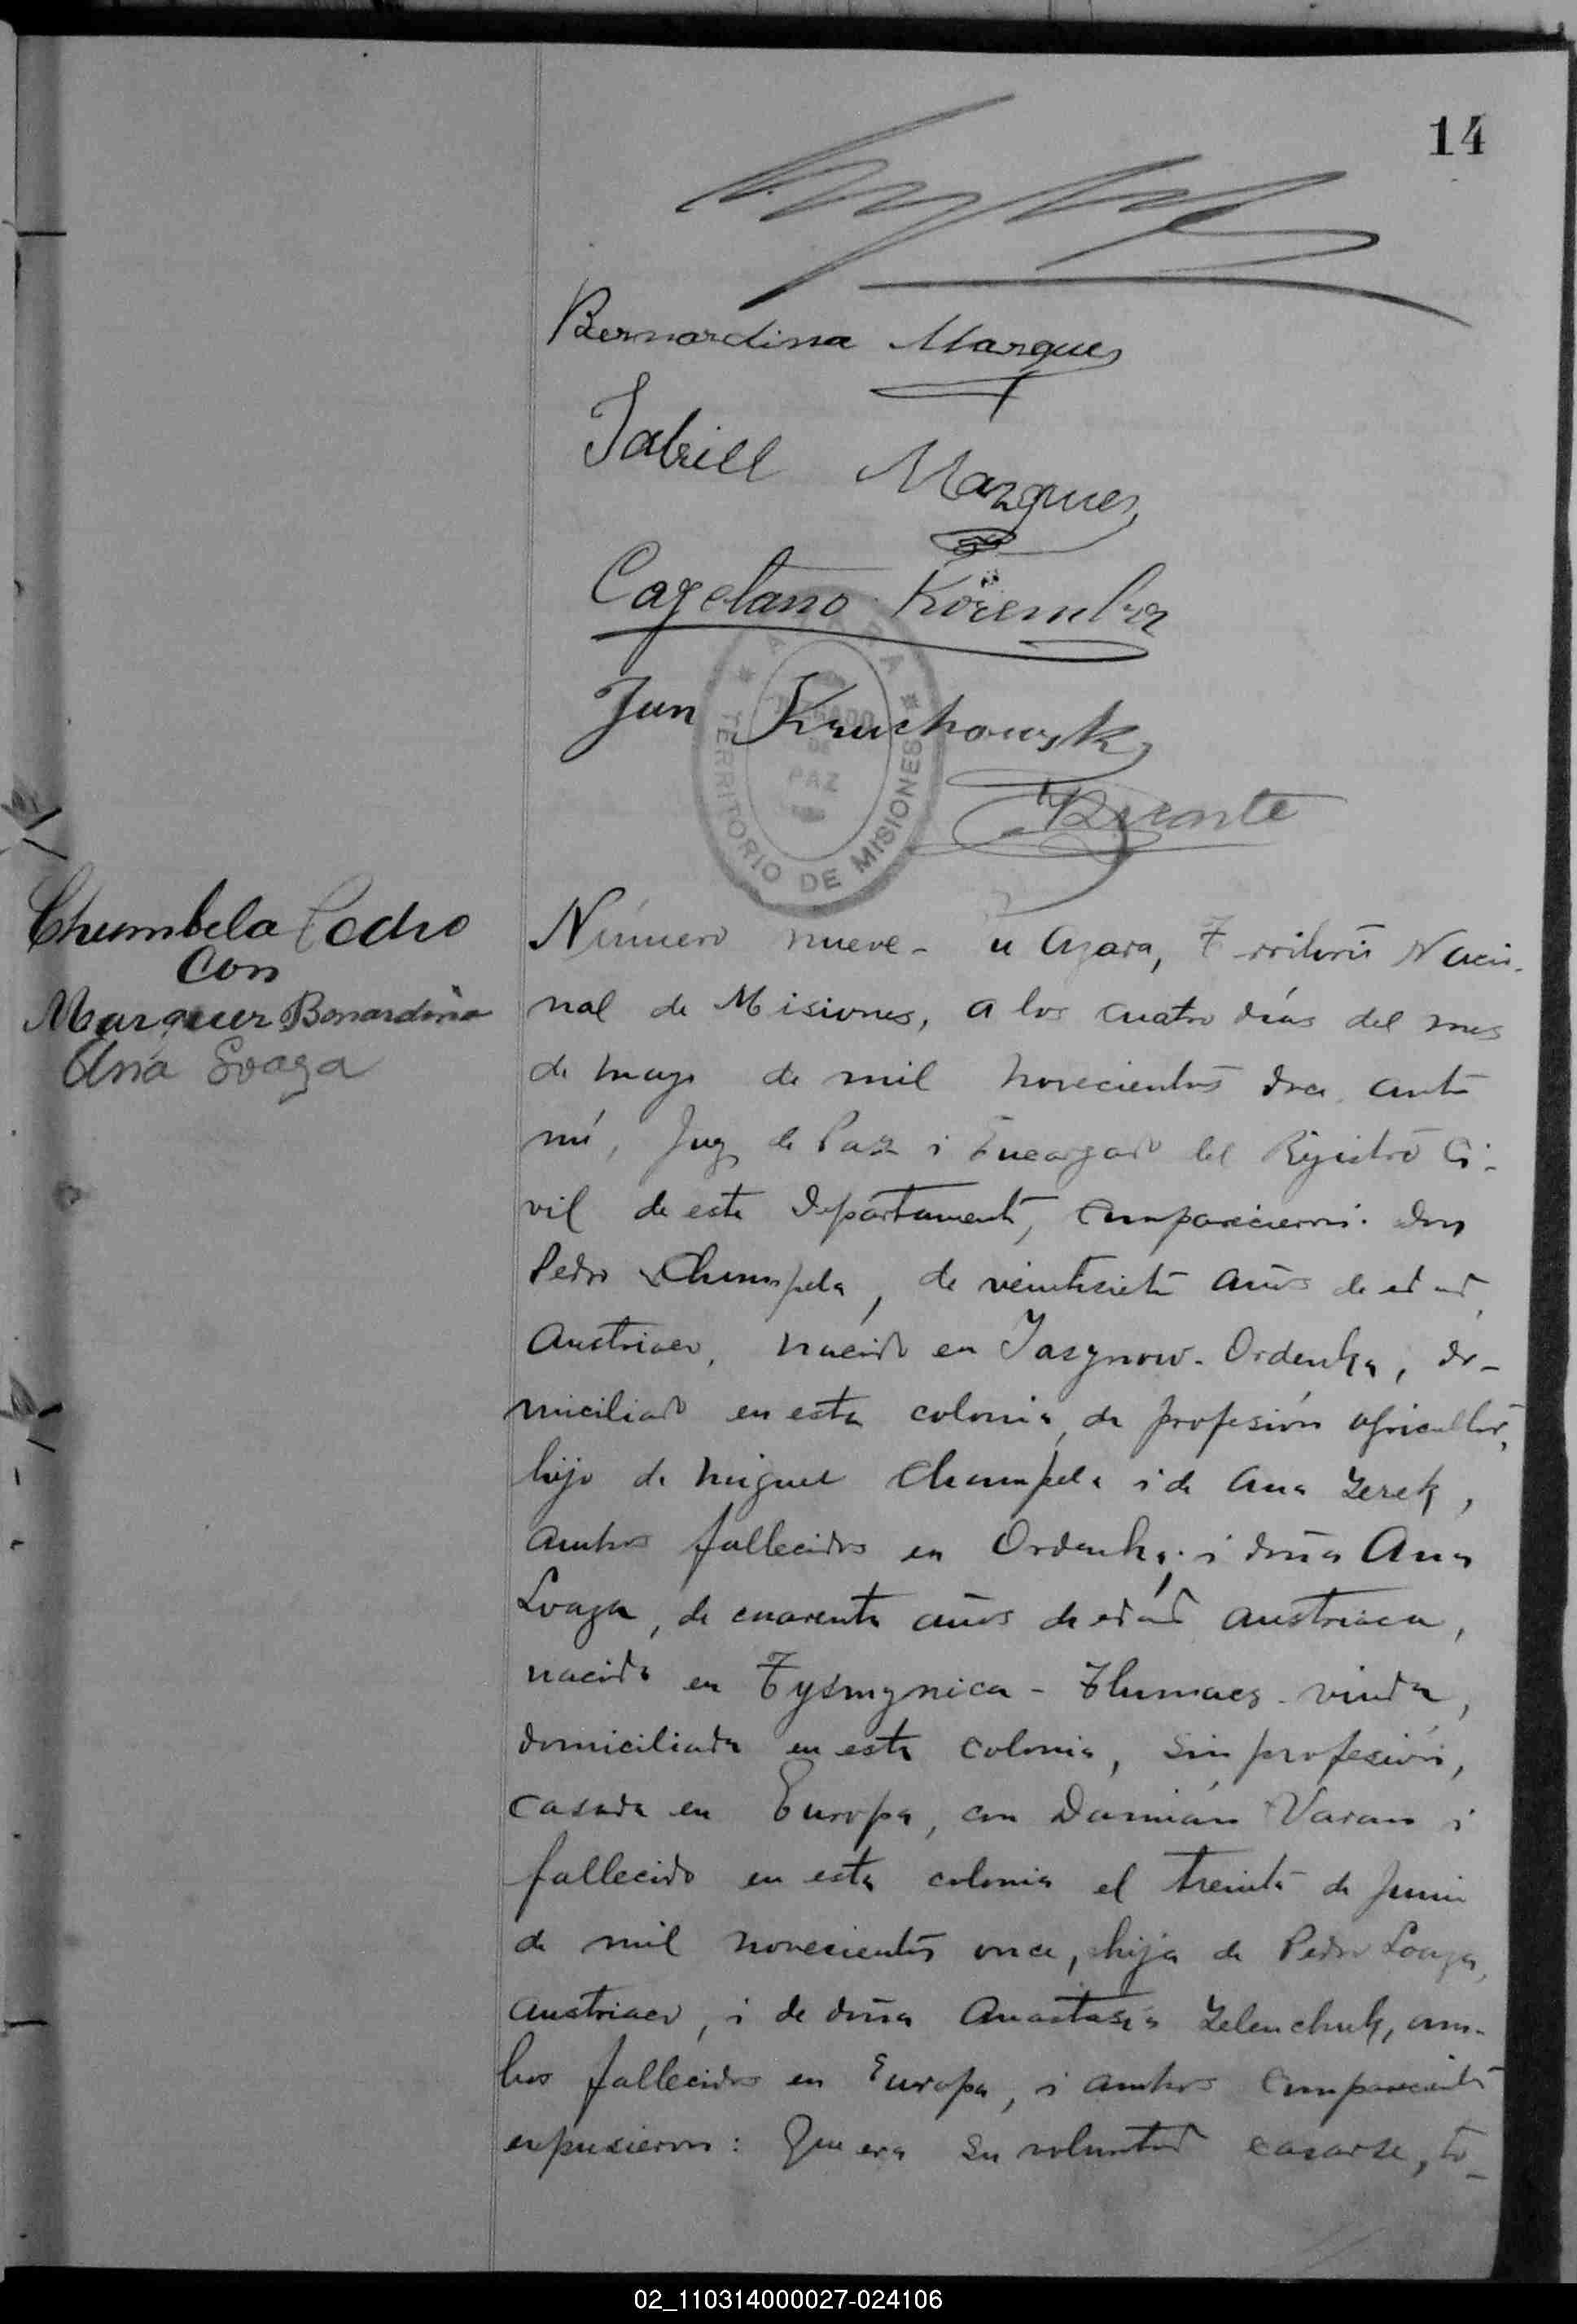 14
Bernardina Marques
Jabriell Marquez
Cayetano Kozemba
Jan Kruchowsk
Vicente
AZARA
JUZGADO
DE
PAZ
TERRITORIO DE MISIONES
Chumbela Pedro
Con
Marquer Bernardina
Ana Soaga
Número nueve - en Azara, Territorio Nacio-
nal de Misiones, a los cuatro días del mes
de mayo de mil novecientos doce ante
mí, Juez de Paz i Encargado del Registro Ci-
vil de este Departamento, comparecieron: don
Pedro Chumpela, de veintisiete años de edad,
Austriaco, nacido en Jasynow-Ordenka, do-
miciliado en esta colonia, de profesión agricultor,
hijo de Miguel Chumpela i de Ana Zerek,
ambos fallecidos en Ordenka; i doña Ana
Loaga, de cuarenta años de edad austriaca,
nacida en Tysmynica - Tlumacz - viuda,
domiciliada en esta colonia, sin profesión,
casada en Europa, con Damián Varan i
fallecido en esta colonia el treinta de Junio
de mil novecientos once, hija de Pedro Loaga,
austriaco, i de doña Anastasia Zelenchuk, am-
bos fallecidos en Europa, i ambos comparecientes
expusieron: Que era su voluntad casarse, to-
02_110314000027-024106